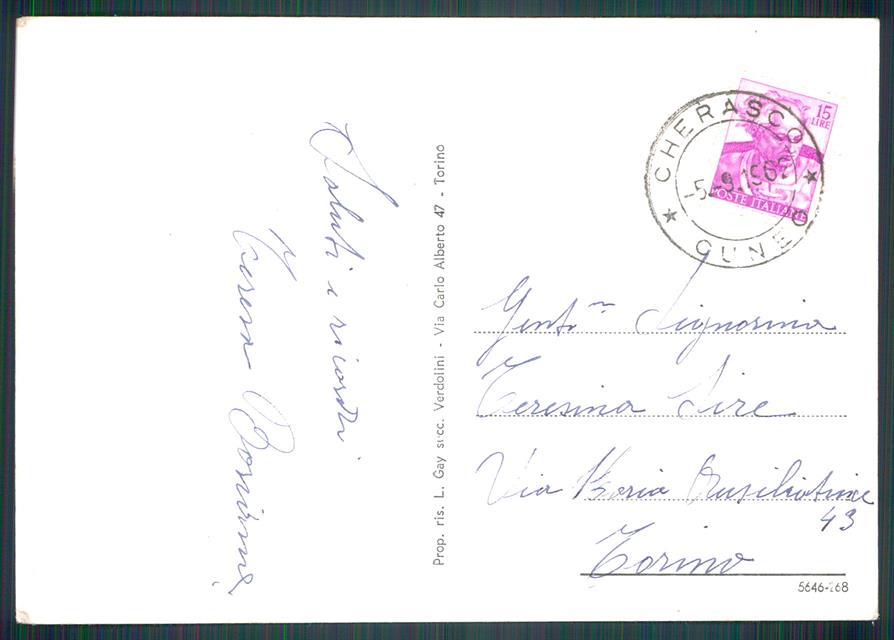 Saluti e ricordi
Teresa
Prop. ris. L. Gay succ. Verdolini - Via Carlo Alberto 47 - Torino
15
LIRE
POSTE ITALIANE
CHERASCO
-5.-9.1962
CUNEO
Gent.ma Signorina
Teresina Sire
Via Maria Ausiliatrice
43
Torino
5646-168